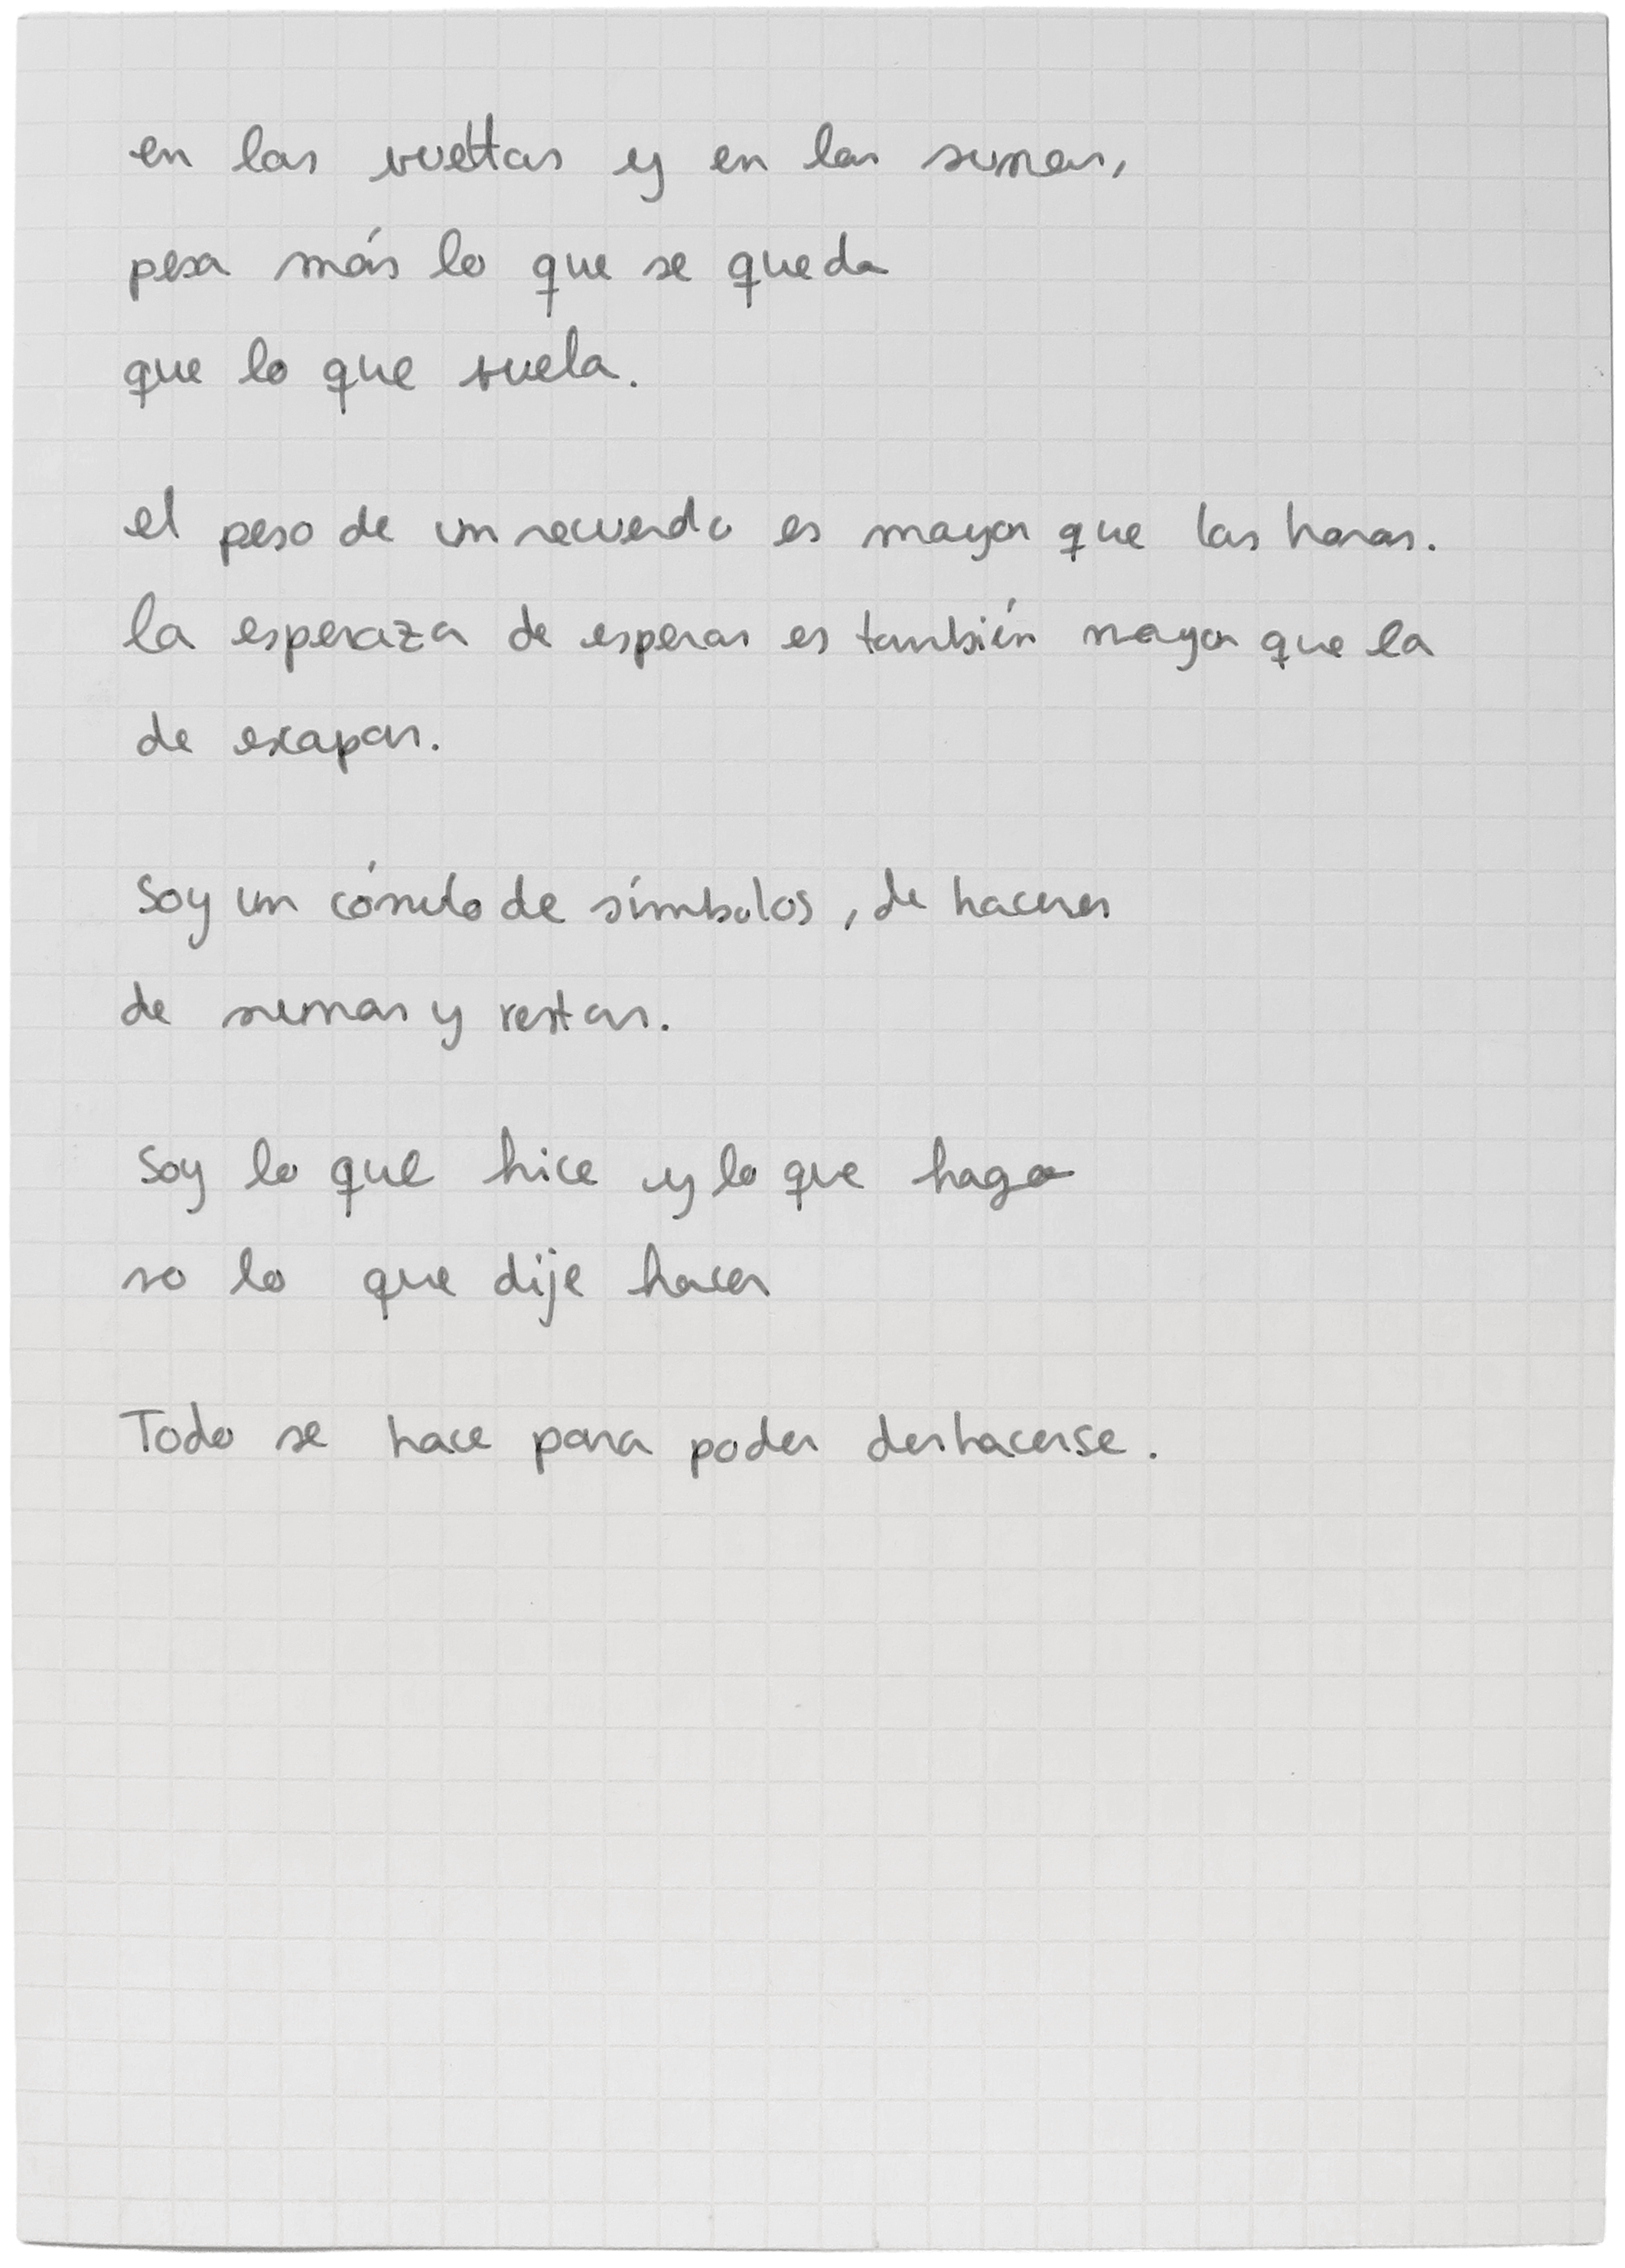 en las vueltas y en las sumas,
pesa más lo que se queda
que lo que vuela.
el peso de un recuerdo es mayor que las horas.
la esperaza de esperar es también mayor que la
de escapar.
Soy un cómulo de símbolos, de haceres
de sumas y restas.
Soy lo que hice y lo que hago
no lo que dije hacer
Todo se hace para poder deshacerse.